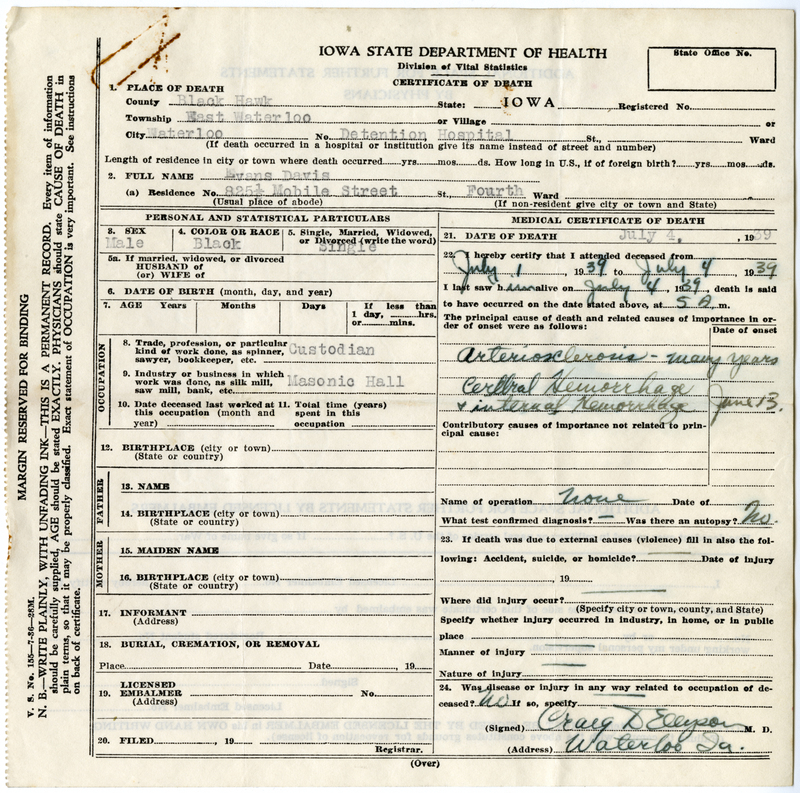 IOWA STATE DEPARTMENT OF HEALTH
Division of Vital Statistics
CERTIFICATE OF DEATH
State Office No.
1. PLACE OF DEATH
County Black Hawk State: IOWA Registered No.
Township East Waterloo or Village or
City Waterloo No. Detention Hospital St., Ward
(If death occurred in a hospital or institution give its name instead of street and number)
Length of residence in city or town where death occurred yrs. mos. ds. How long in U.S., if of foreign birth? yrs. mos. ds.
2. FULL NAME Evans Davis
(a) Residence No. 825½ Mobile Street St., Fourth Ward
(Usual place of abode) (If non-resident give city or town and State)
PERSONAL AND STATISTICAL PARTICULARS
3. SEX 4. COLOR OR RACE 5. Single, Married, Widowed, or Divorced (write the word)
Male Black Single
5a. If married, widowed, or divorced
HUSBAND of
(or) WIFE of
6. DATE OF BIRTH (month, day, and year)
7. AGE Years Months Days If less than
1 day, hrs.
or mins.
OCCUPATION
8. Trade, profession, or particular
kind of work done, as spinner,
sawyer, bookkeeper, etc. Custodian
9. Industry or business in which
work was done, as silk mill,
saw mill, bank, etc. Masonic Hall
10. Date deceased last worked at
this occupation (month and
year)
11. Total time (years)
spent in this
occupation
12. BIRTHPLACE (city or town)
(State or country)
FATHER
13. NAME
14. BIRTHPLACE (city or town)
(State or country)
MOTHER
15. MAIDEN NAME
16. BIRTHPLACE (city or town)
(State or country)
17. INFORMANT
(Address)
18. BURIAL, CREMATION, OR REMOVAL
Place Date , 19
19. LICENSED
EMBALMER No.
20. FILED , 19
Registrar.
MEDICAL CERTIFICATE OF DEATH
21. DATE OF DEATH July 4, , 1939
22. I hereby certify that I attended deceased from
July 1 , 1939 to July 4 , 1939
I last saw him alive on July 4 , 1939, death is said
to have occurred on the date stated above, at 5 A m.
The principal cause of death and related causes of importance in or-
der of onset were as follows:
Date of onset
Arteriosclerosis - many years
Cerebral Hemorrhage
& internal Hemorrhage June 13.
Contributory causes of importance not related to prin-
cipal cause:
Name of operation none Date of
What test confirmed diagnosis? — Was there an autopsy? No.
23. If death was due to external causes (violence) fill in also the fol-
lowing: Accident, suicide, or homicide? Date of injury
, 19
Where did injury occur?
(Specify city or town, county, and State)
Specify whether injury occurred in industry, in home, or in public
place
Manner of injury
Nature of injury
24. Was disease or injury in any way related to occupation of de-
ceased? No If so, specify
(Signed) Craig D Ellyson M. D.
(Address) Waterloo Ia.
(Over)
V. S. No. 155—7-36—28M.
MARGIN RESERVED FOR BINDING
N. B.—WRITE PLAINLY, WITH UNFADING INK—THIS IS A PERMANENT RECORD. Every item of information
should be carefully supplied, AGE should be stated EXACTLY. PHYSICIANS should state CAUSE OF DEATH in
plain terms, so that it may be properly classified. Exact statement of OCCUPATION is very important. See instructions
on back of certificate.